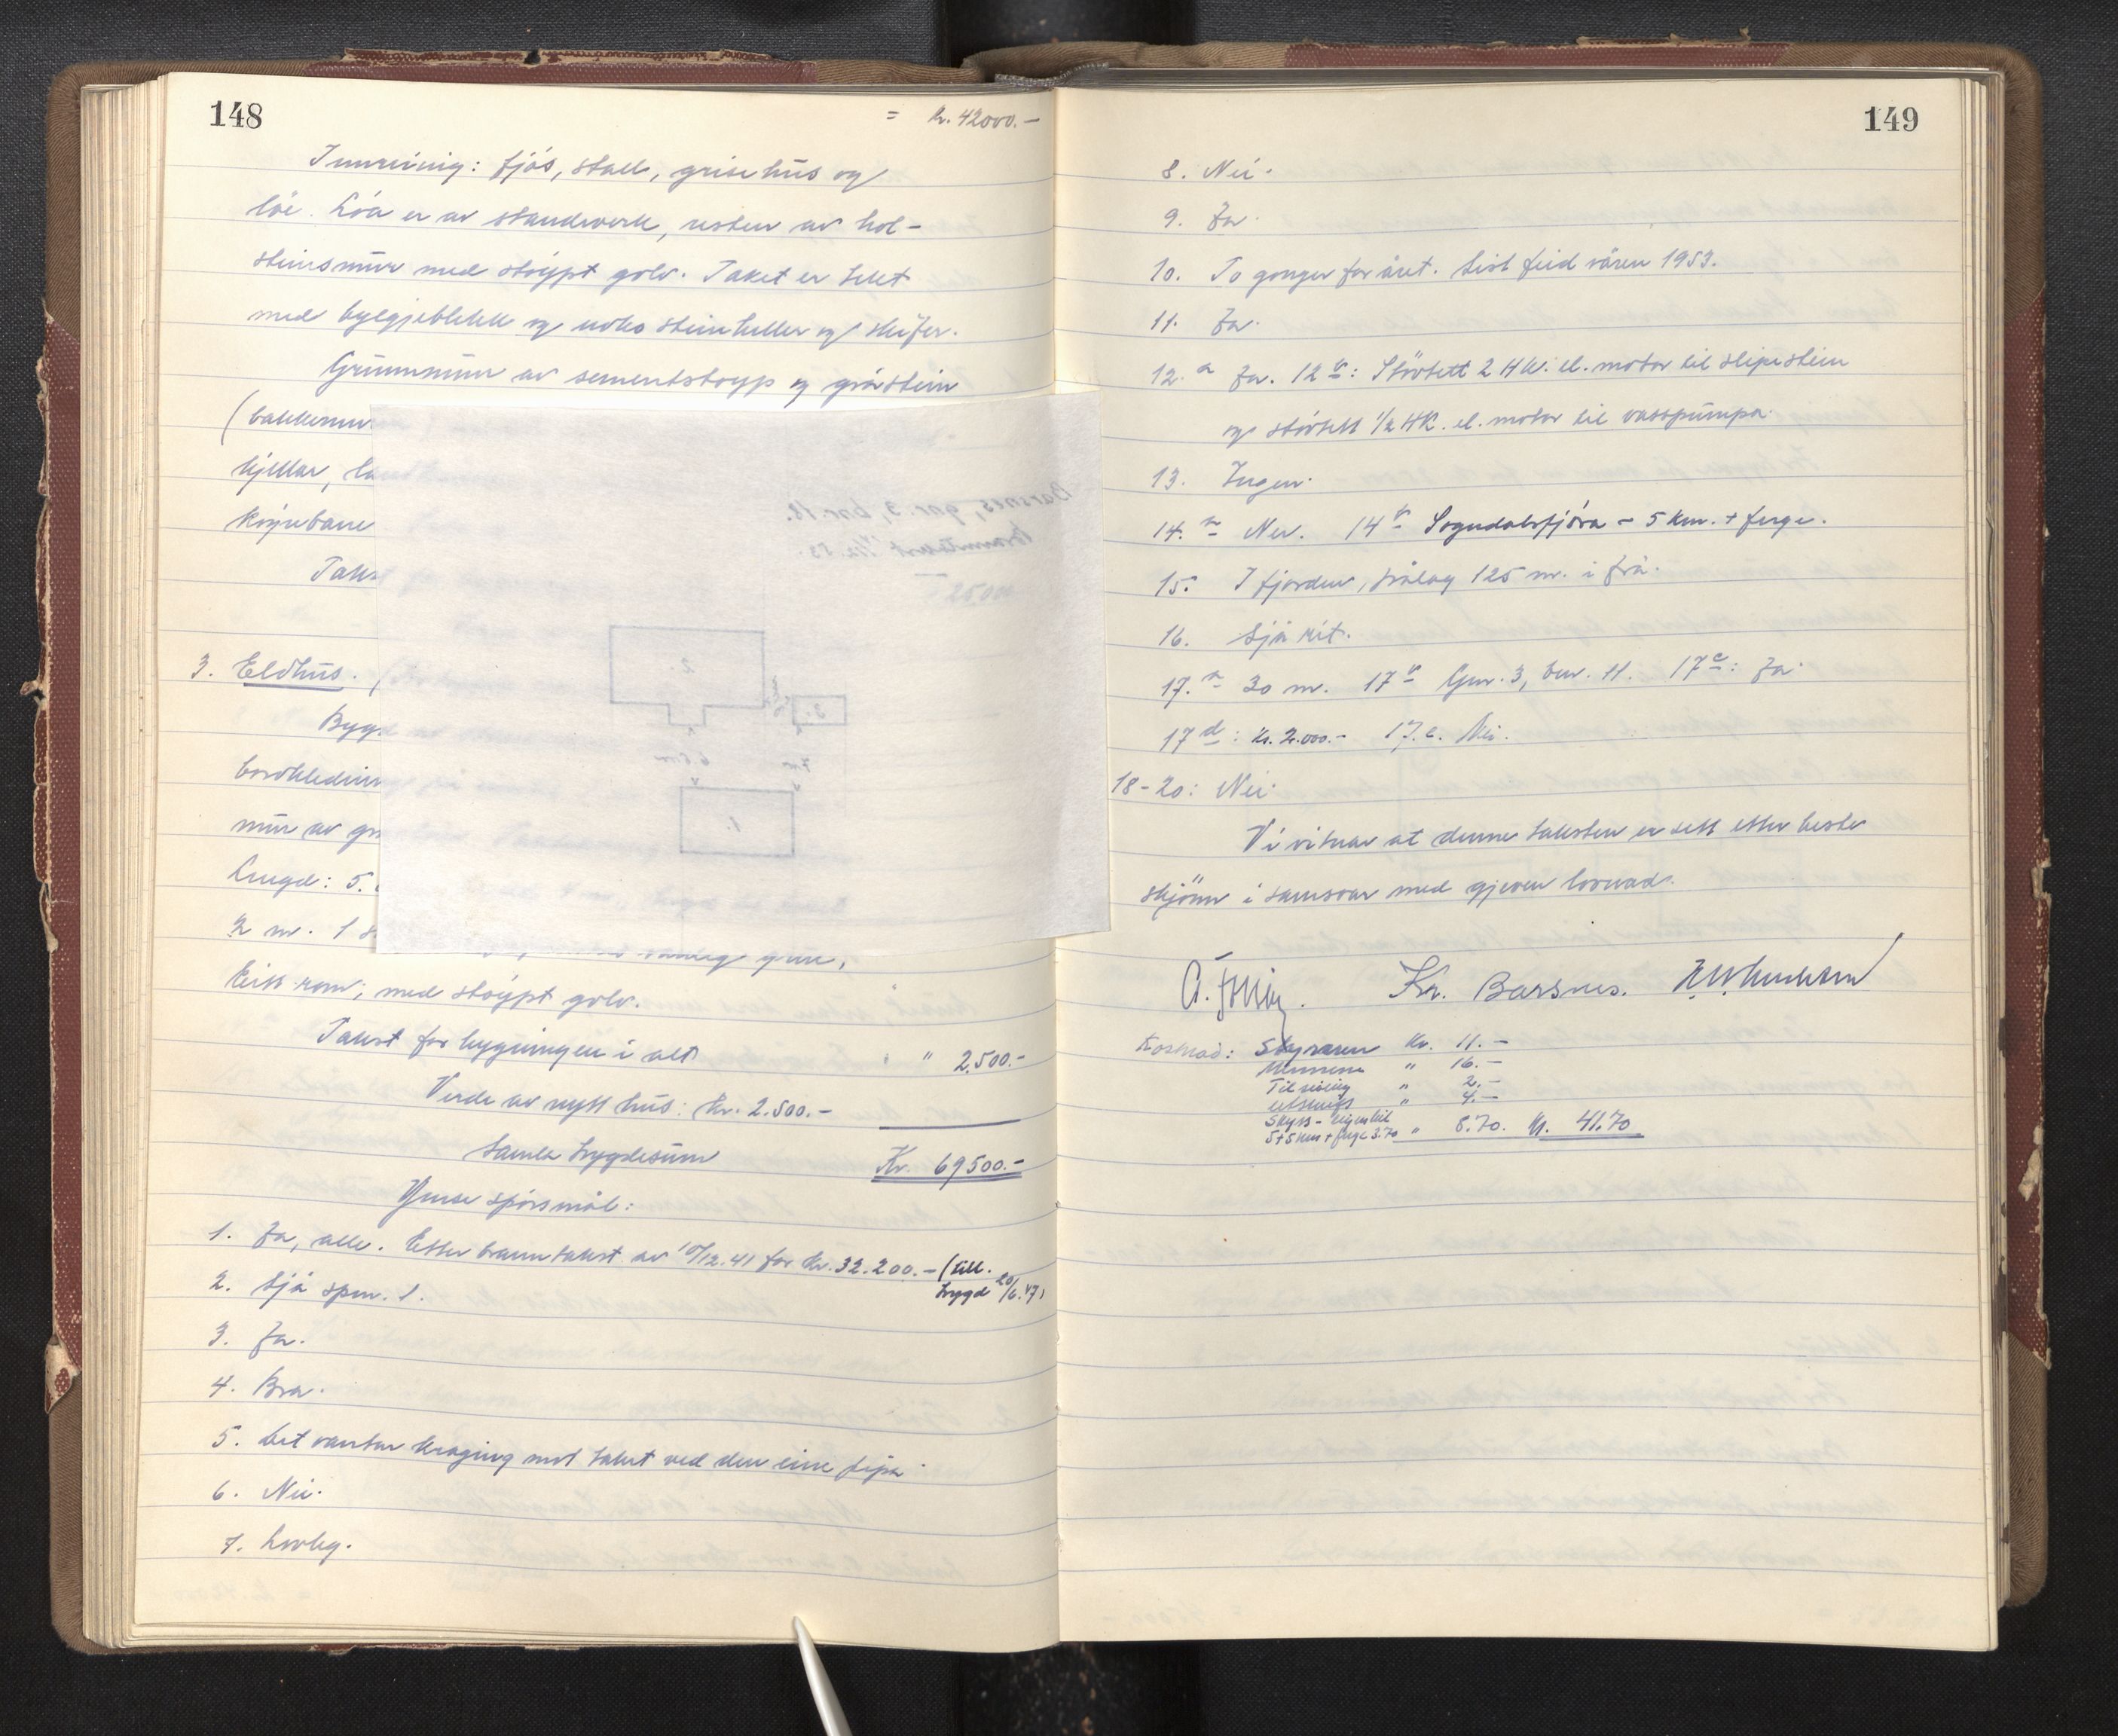 148
= kr. 42000.-
Innreiing: fjøs, stall, grisehus og
löe. Löa er av standverk, resten av hol-
steinsmur med støypt golv. Taket er tekt
med bylgjeblekk og noko steinheller og skifer.
Grunnmur av sementstøyp og gråstein
(bakkemur
kjellar, la
køyrebane
Takst
3. Eldhus. (
Bygd
bordkledning
mur av gr
Lengd: 5.
2 m. 1
Eitt rom, med støypt golv.
Takst for bygningen i alt " " 2.500.-
Verde av nytt hus: Kr. 2.500.-
Samla trygdesum Kr. 69500.-
Ymse spörsmål:
1. Ja, alle. Etter branntakst av 10/12.41 for kr. 32.200.- (till.
trygd 20/6.47)
2. Sjå spm. 1.
3. Ja.
4. Bra.
5. Det vantar kraging mot taket ved den eine pipa.
6. Nei.
7. Lovleg.
Barsnes, gnr. 3, bnr. 18.
Branntakst 1/12 53.
25.000
2.
3.
6.5 m
7 m
1.
149
8. Nei.
9. Ja.
10. To gonger for året. Sist feid våren 1953.
11. Ja.
12. a Ja. 12 b: Støvtett 2 HK. el. motor til slipestein
og støvtett 1/2 HK. el. motor til vasspumpa.
13. Ingen.
14. a Nei. 14 b Sogndalsfjøra - 5 km. + ferge.
15. I fjorden, trålag 125 m. i frå.
16. Sjå rit.
17. a 30 m. 17 b Gnr. 3, bnr. 11. 17 c: Ja.
17 d: Kr. 2.000.- 17. e. Nei.
18-20: Nei.
Vi vitnar at denne taksten er sett etter beste
skjönn i samsvar med gjeven lovnad.
Kr. Barsnes.
Kostnad: Skrivaren Kr. 11.-
Mennene " 16.-
Tilseiing " 2.-
Utskrift " 4.-
Skyss - eigen bil
5+5 km + ferge 3.70 " 8.70. Kr. 41.70